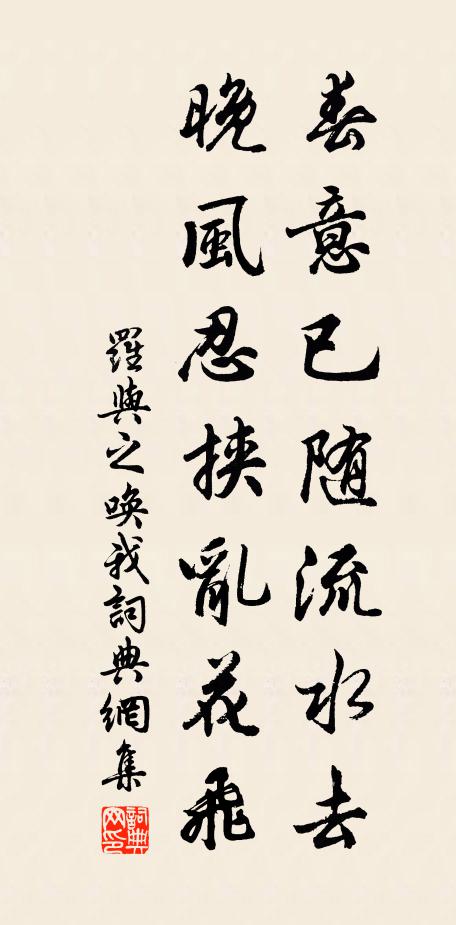 春意已随流水去
晚風忍挾亂花飛
羅與之唤我詞典網集
詞典网印